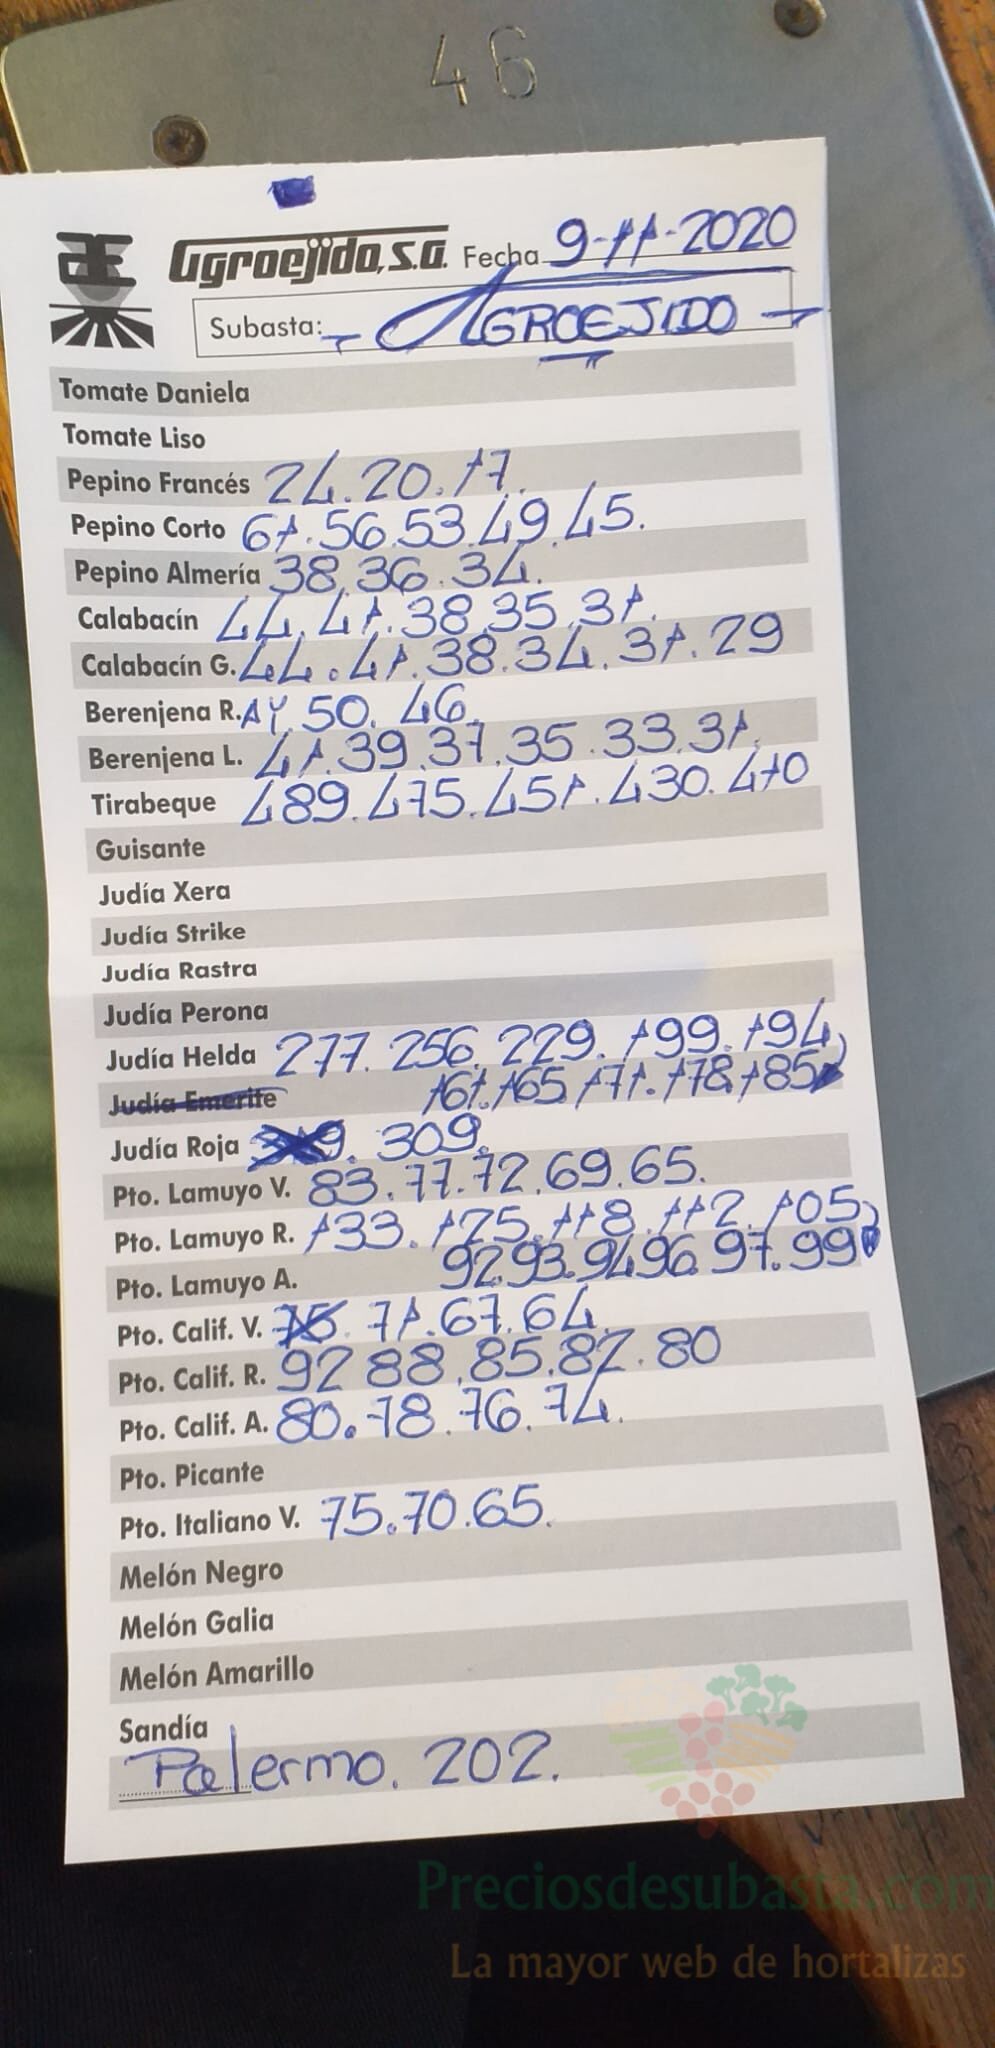 46
Agroejido, S.A. Fecha 9-11-2020
Subasta: - AGROEJIDO -
Tomate Daniela
Tomate Liso
Pepino Francés 24. 20. 17.
Pepino Corto 61. 56. 53. 49. 45.
Pepino Almería 38. 36. 34.
Calabacín 44. 41. 38. 35. 31.
Calabacín G. 44. 41. 38. 34. 31. 29
Berenjena R. AY 50. 46.
Berenjena L. 41. 39. 37. 35. 33. 31.
Tirabeque 489. 475. 451. 430. 410
Guisante
Judía Xera
Judía Strike
Judía Rastra
Judía Perona
Judía Helda 277. 256. 229. 199. 194
Judía Emerite 161. 165. 171. 178. 185
Judía Roja 309.
Pto. Lamuyo V. 83. 77. 72. 69. 65.
Pto. Lamuyo R. 133. 125. 118. 112. 105
Pto. Lamuyo A. 92. 93. 94. 96. 97. 99
Pto. Calif. V. 75. 71. 67. 64.
Pto. Calif. R. 92 88. 85. 82. 80
Pto. Calif. A. 80. 78. 76. 74.
Pto. Picante
Pto. Italiano V. 75. 70. 65.
Melón Negro
Melón Galia
Melón Amarillo
Sandía
Palermo. 202.
Preciosdesubasta.com
La mayor web de hortalizas